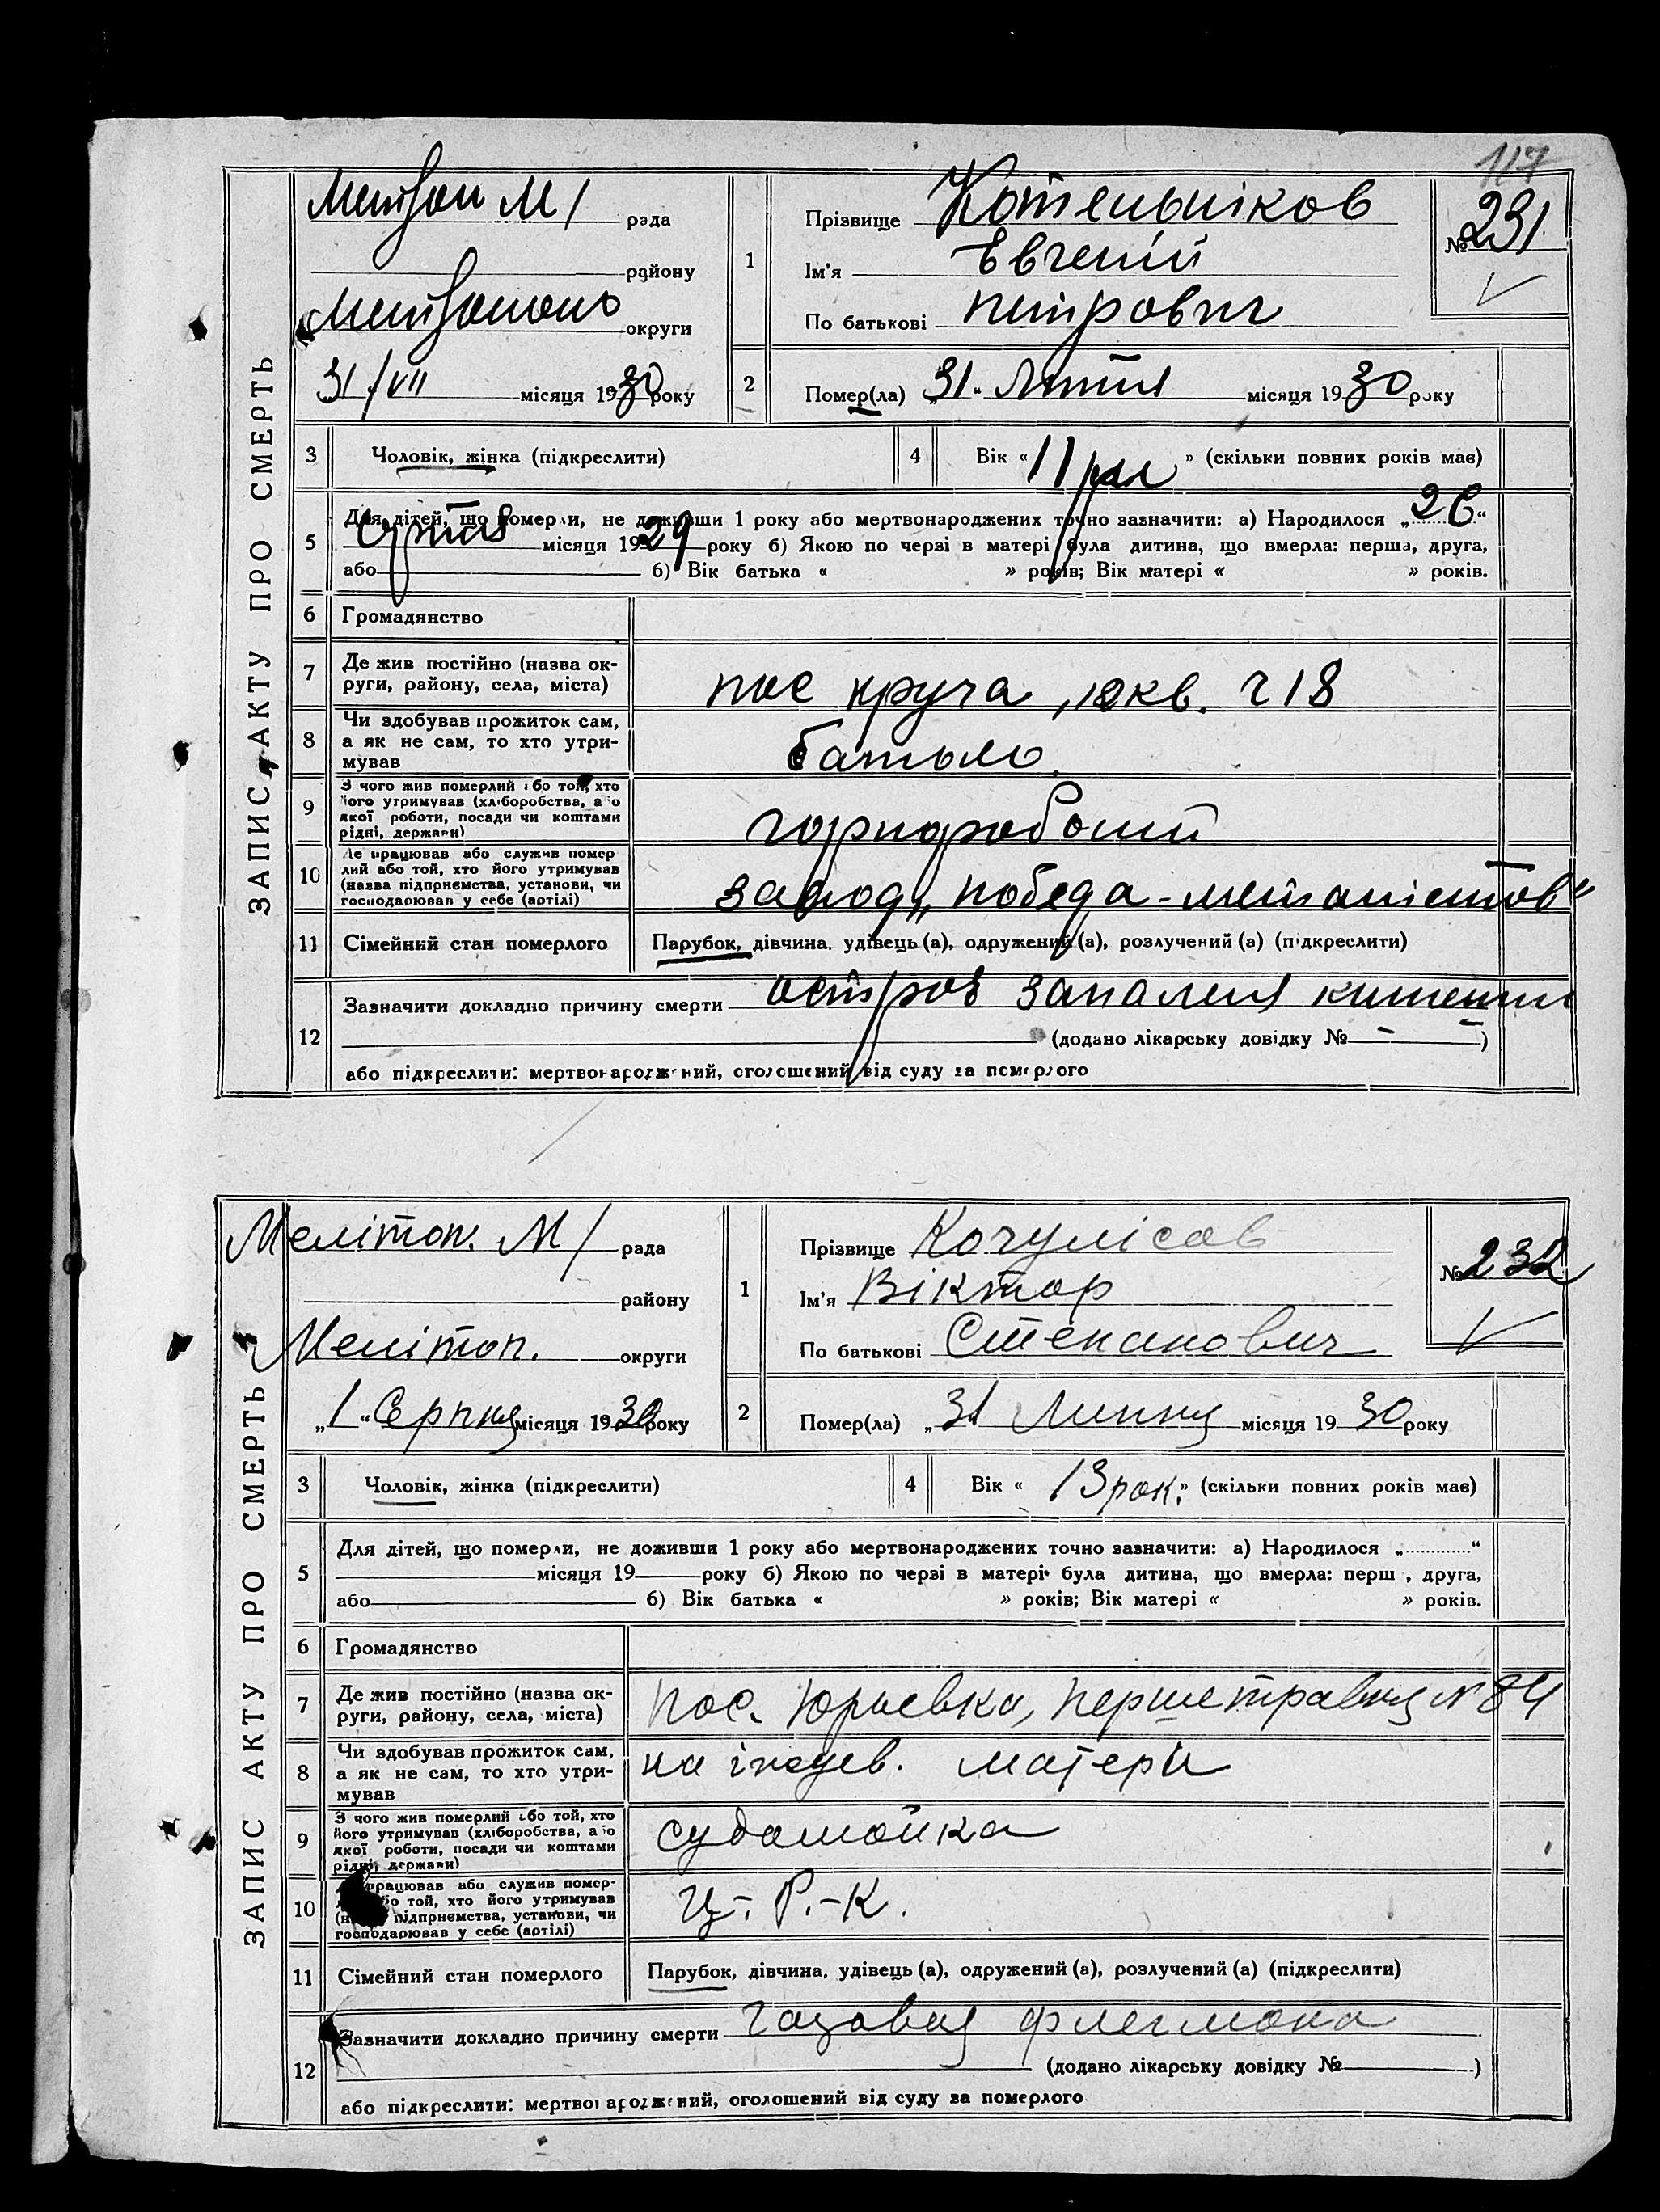 117
ЗАПИС АКТУ ПРО СМЕРТЬ
М/ рада
району
округи
31/VII місяця 1930 року
1
Прізвище Котельніков
Ім'я Євгеній
По батькові Петрович
№ 231
2
Помер(ла) „31" Липня місяця 1930 року
3 Чоловік, жінка (підкреслити)
4 Вік « 11 » (скільки повних років має)
5 Для дітей, що померли, не доживши 1 року або мертвонароджених точно зазначити: а) Народилося „26"
Серпня місяця 1929 року б) Якою по черзі в матері була дитина, що вмерла: перша, друга,
або б) Вік батька « » років; Вік матері « » років.
6 Громадянство
7 Де жив постійно (назва ок-
руги, району, села, міста)
пос круча, 18 кв. ч 18
8 Чи здобував прожиток сам,
а як не сам, то хто утри-
мував
батько
9 З чого жив померлий або той, хто
його утримував (хліборобства, або
якої роботи, посади чи коштами
рідні, держави)
чорноробочий
10 Де працював або служив помер-
лий або той, хто його утримував
(назва підприємства, установи, чи
господарював у себе (артілі)
завод „победа-металістов"
11 Сімейний стан померлого
Парубок, дівчина, удівець (а), одружений (а), розлучений (а) (підкреслити)
12 Зазначити докладно причину смерти запалення
(додано лікарську довідку № – – )
або підкреслити: мертвонароджений, оголошений від суду за померлого
ЗАПИС АКТУ ПРО СМЕРТЬ
Мелітоп. М/ рада
району
Мелітоп. округи
„1" Серпня місяця 1930 року
1
Прізвище Кочулісов
Ім'я Віктор
По батькові Степанович
№ 232
2
Помер(ла) „31 Липня місяця 1930 року
3 Чоловік, жінка (підкреслити)
4 Вік « 13 рок.» (скільки повних років має)
5 Для дітей, що померли, не доживши 1 року або мертвонароджених точно зазначити: а) Народилося „ "
місяця 19 року б) Якою по черзі в матері була дитина, що вмерла: перш , друга,
або б) Вік батька « » років; Вік матері « » років.
6 Громадянство
7 Де жив постійно (назва ок-
руги, району, села, міста)
Пос. Юрьевка, Першетравня № 84
8 Чи здобував прожиток сам,
а як не сам, то хто утри-
мував
на іждев. матери
9 З чого жив померлий або той, хто
його утримував (хліборобства, або
якої роботи, посади чи коштами
рідні, держави)
судомойка
10 працював або служив помер-
бо той, хто його утримував
підприємства, установи, чи
господарював у себе (артілі)
Ц.-Р.-К.
11 Сімейний стан померлого
Парубок, дівчина, удівець (а), одружений (а), розлучений (а) (підкреслити)
12 Зазначити докладно причину смерти газовая флегмона
(додано лікарську довідку № )
або підкреслити: мертвонароджений, оголошений від суду за померлого